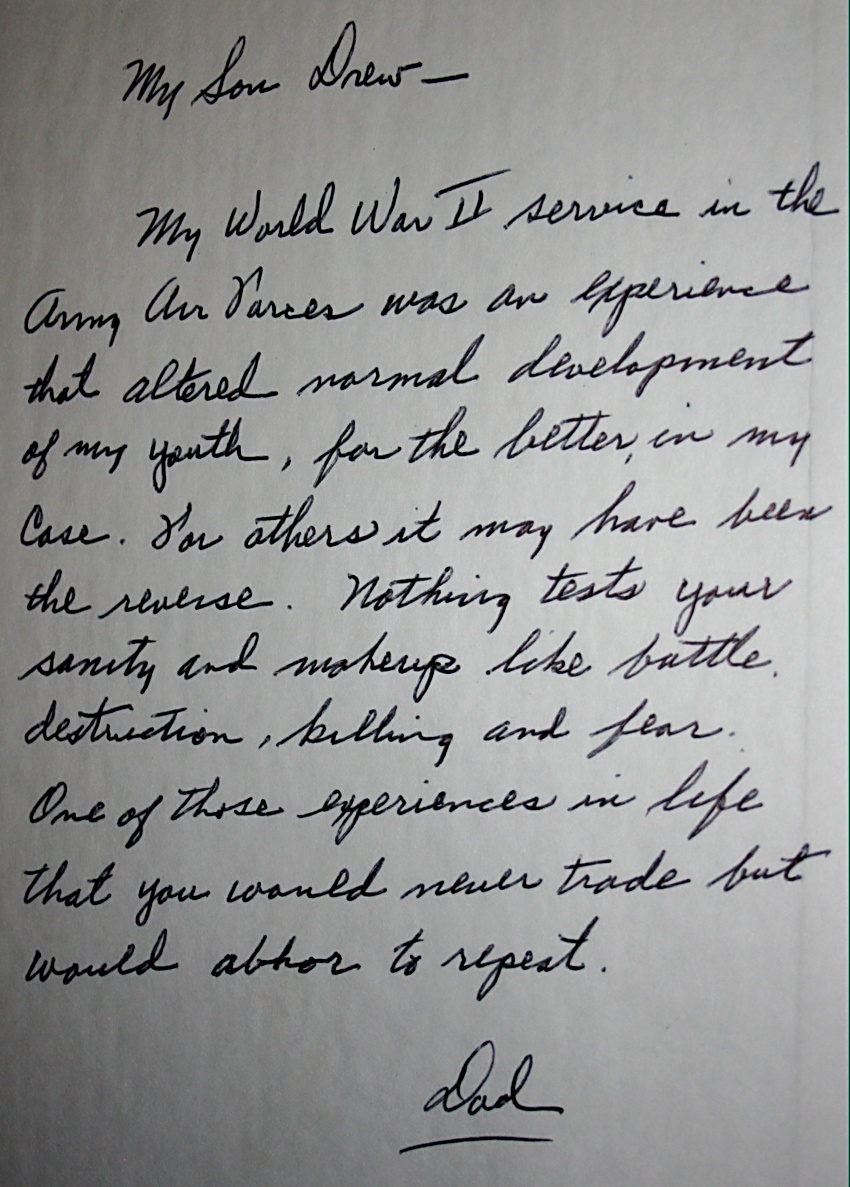 My Son Drew—
My World War II service in the
Army Air Forces was an experience
that altered normal development
of my youth, for the better, in my
Case. For others it may have been
the reverse. Nothing tests your
sanity and makeup like battle.
destruction, killing and fear.
One of those experiences in life
that you would never trade but
would abhor to repeat.
Dad